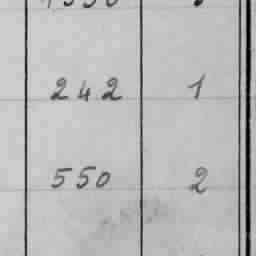 242 1
550 2